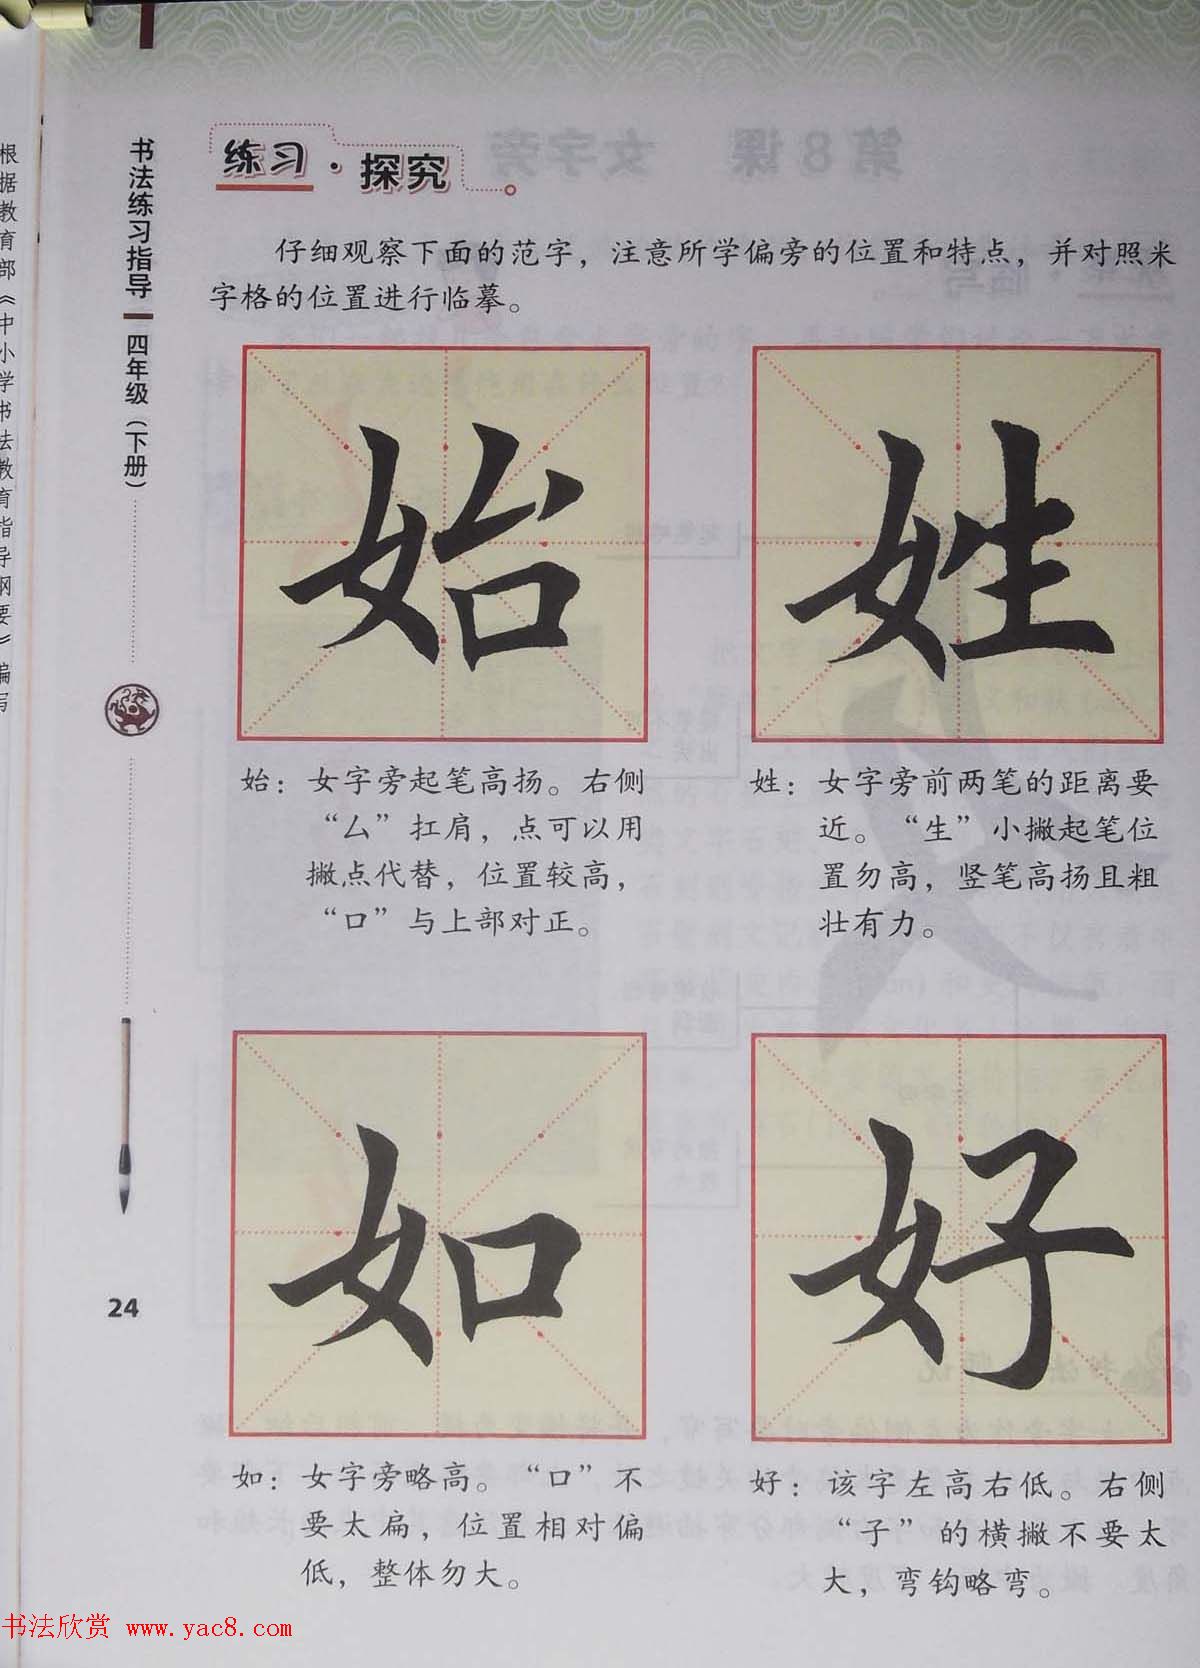 根据教育部《中小学书法教育指导纲要》编写
书法练习指导
四年级（下册）
24
练习·探究
仔细观察下面的范字，注意所学偏旁的位置和特点，并对照米
字格的位置进行临摹。
始
姓
始：女字旁起笔高扬。右侧
“厶”扛肩，点可以用
撇点代替，位置较高，
“口”与上部对正。
姓：女字旁前两笔的距离要
近。“生”小撇起笔位
置勿高，竖笔高扬且粗
壮有力。
如
好
如：女字旁略高。“口”不
要太扁，位置相对偏
低，整体勿大。
好：该字左高右低。右侧
“子”的横撇不要太
大，弯钩略弯。
书法欣赏 www.yac8.com